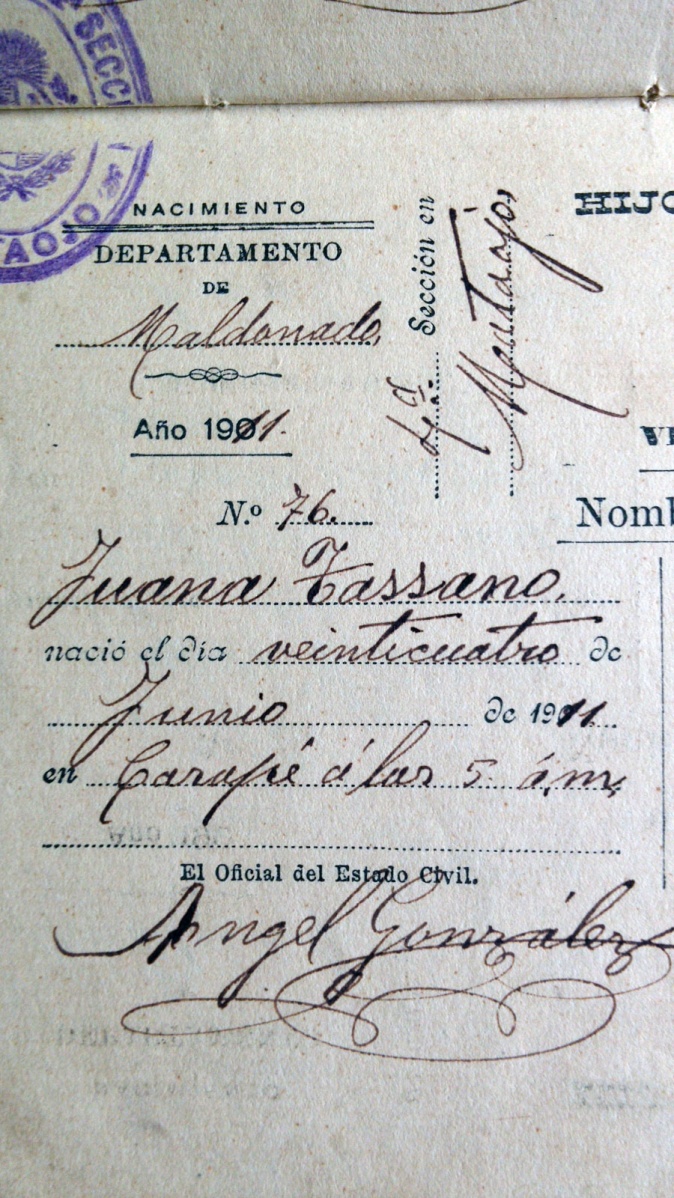 SECCI
TAOJO
NACIMIENTO
DEPARTAMENTO
DE
Maldonado,
Año 1911.
Sección en
Mataojo,
HIJO
N.º 76.
Nomb
Juana Tassano.
nació el día veinticuatro de
Junio de 1911
en Carapé á las 5 á,m,
El Oficial del Estado Civil.
Angel González